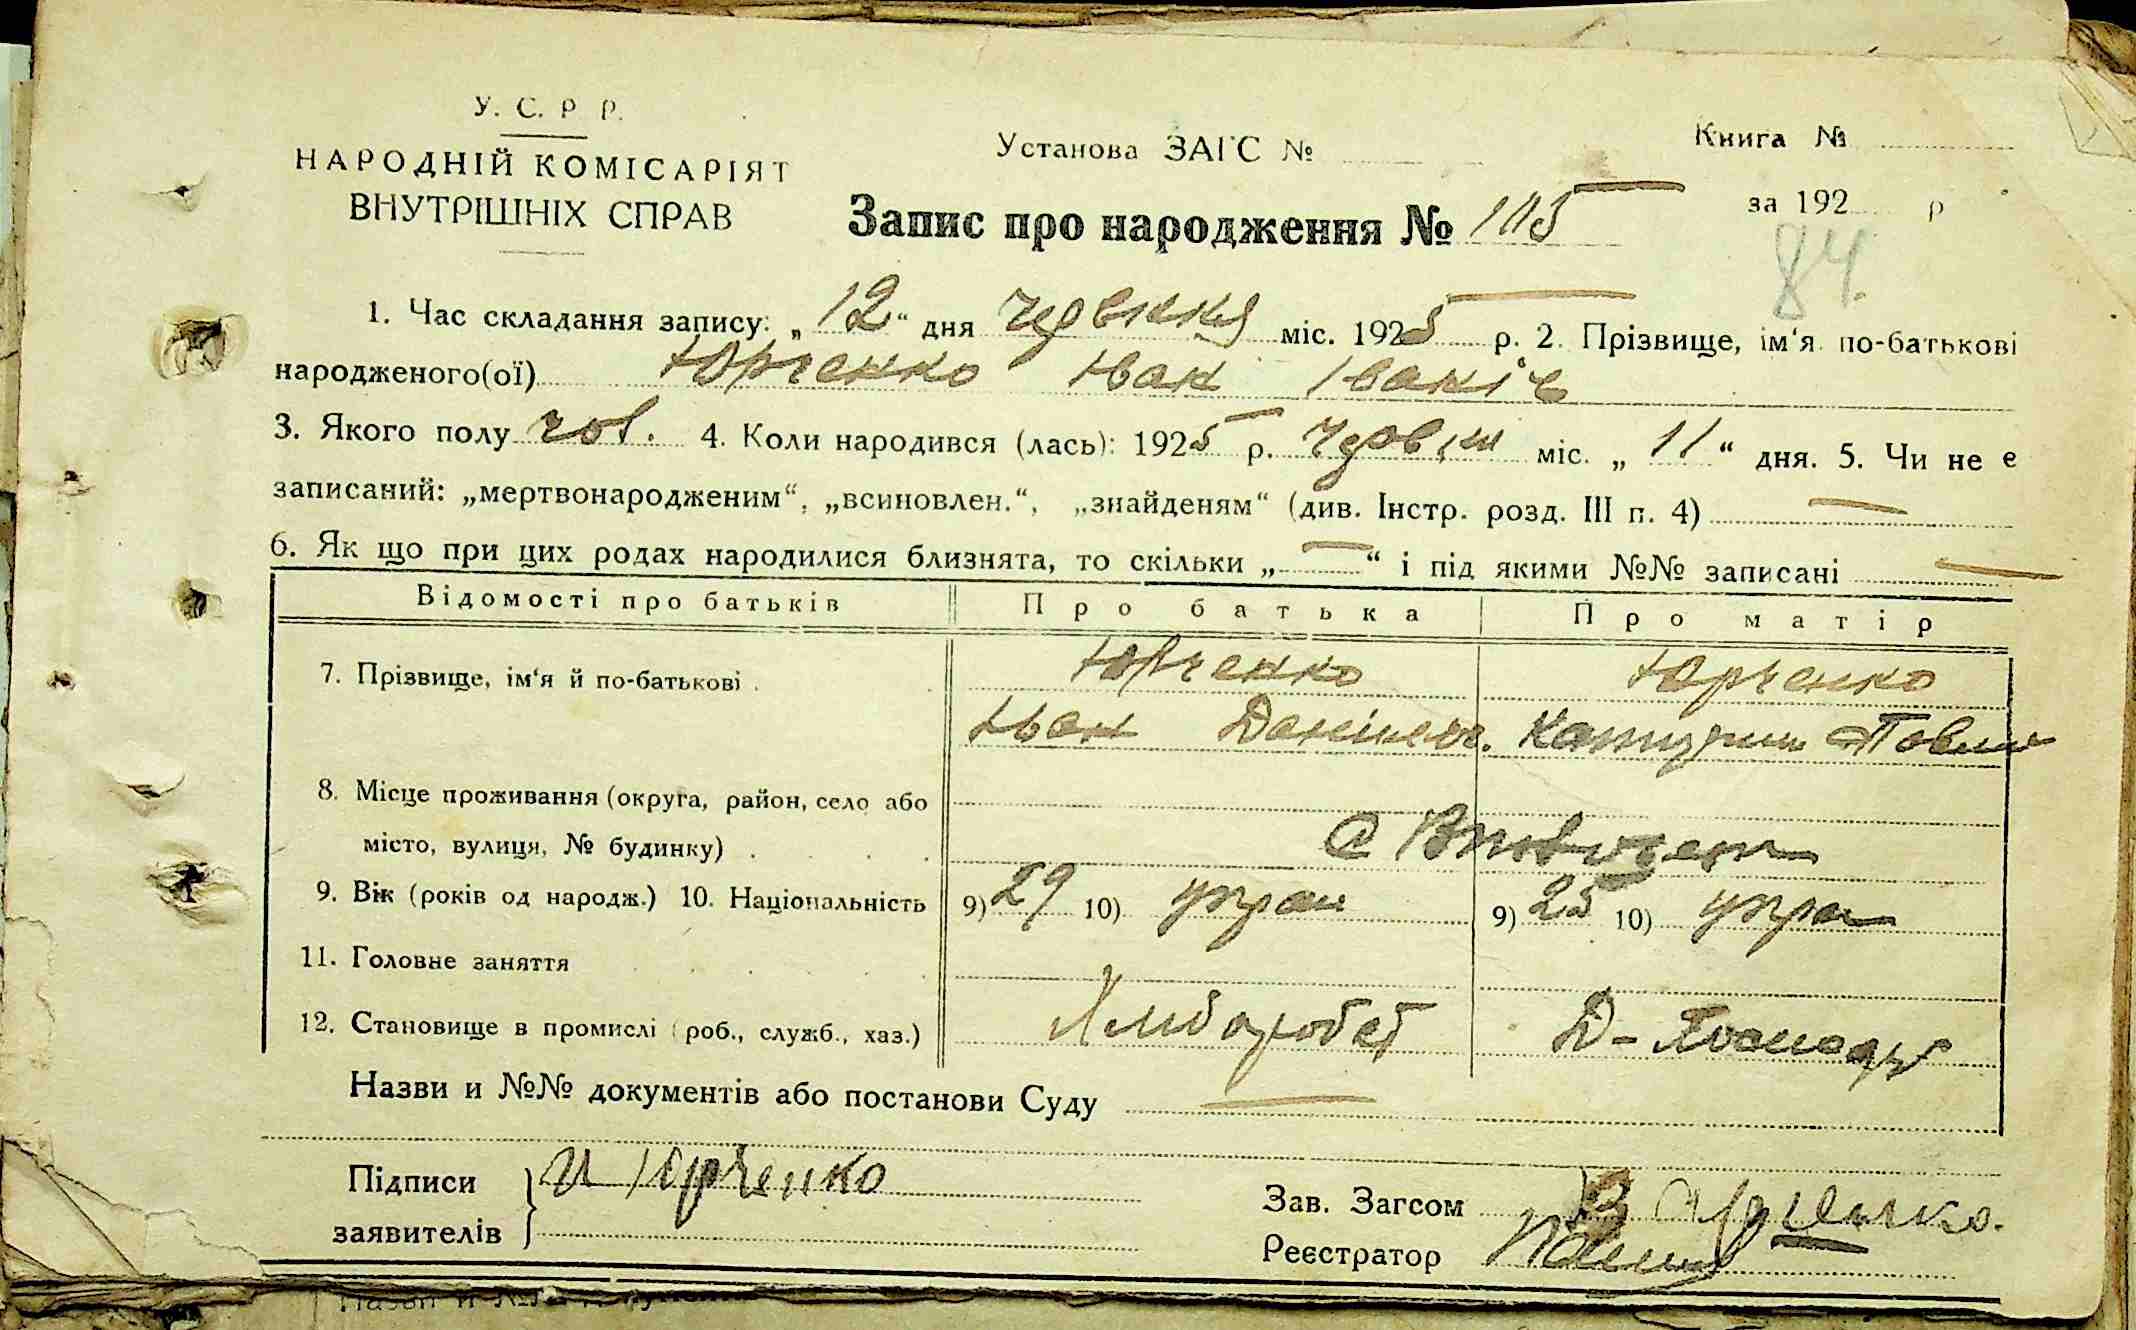 У. С. Р. Р.
НАРОДНІЙ КОМІСАРІЯТ
ВНУТРІШНІХ СПРАВ
Установа ЗАГС №
Книга №
за 192 р
Запис про народження № 115
84.
1. Час складання запису: „12“ дня червня міс. 1925 р. 2. Прізвище, ім‘я по-батькові
народженого(ої) Юрченко Іван Іванів
3. Якого полу чол. 4. Коли народився (лась): 1925 р. червня міс. „11“ дня. 5. Чи не є
записаний: „мертвонародженим“, „всиновлен.“, „знайденям“ (див. Інстр. розд. III п. 4) —
6. Як що при цих родах народилися близнята, то скільки „—“ і під якими №№ записані —
Відомості про батьків Про батька Про матір
7. Прізвище, ім‘я й по-батькові Юрченко Юрченко
Іван Катерина
8. Місце проживання (округа, район, село або
місто, вулиця, № будинку) с
9. Вік (років од народж.) 10. Національність 9) 29 10) украи 9) 25 10) укра
11. Головне заняття
12. Становище в промислі (роб., служб., хаз.) Хлібороб Д-
Назви и №№ документів або постанови Суду —
Підписи И Юрченко
заявителів
Зав. Загсом
Реєстратор